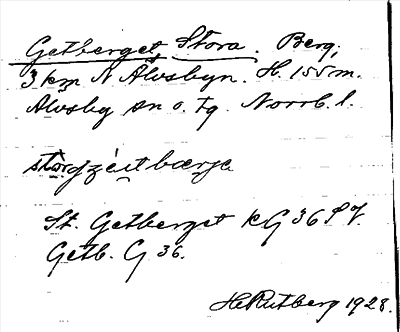 Getberget, Stora. Berg,
3 km N Älvsbyn. H. 155 m.
Älvsby sn o. tg. Norrb. l.
St. Getberget KG 36 P V.
Getb. G 36.
H Rutberg 1928.